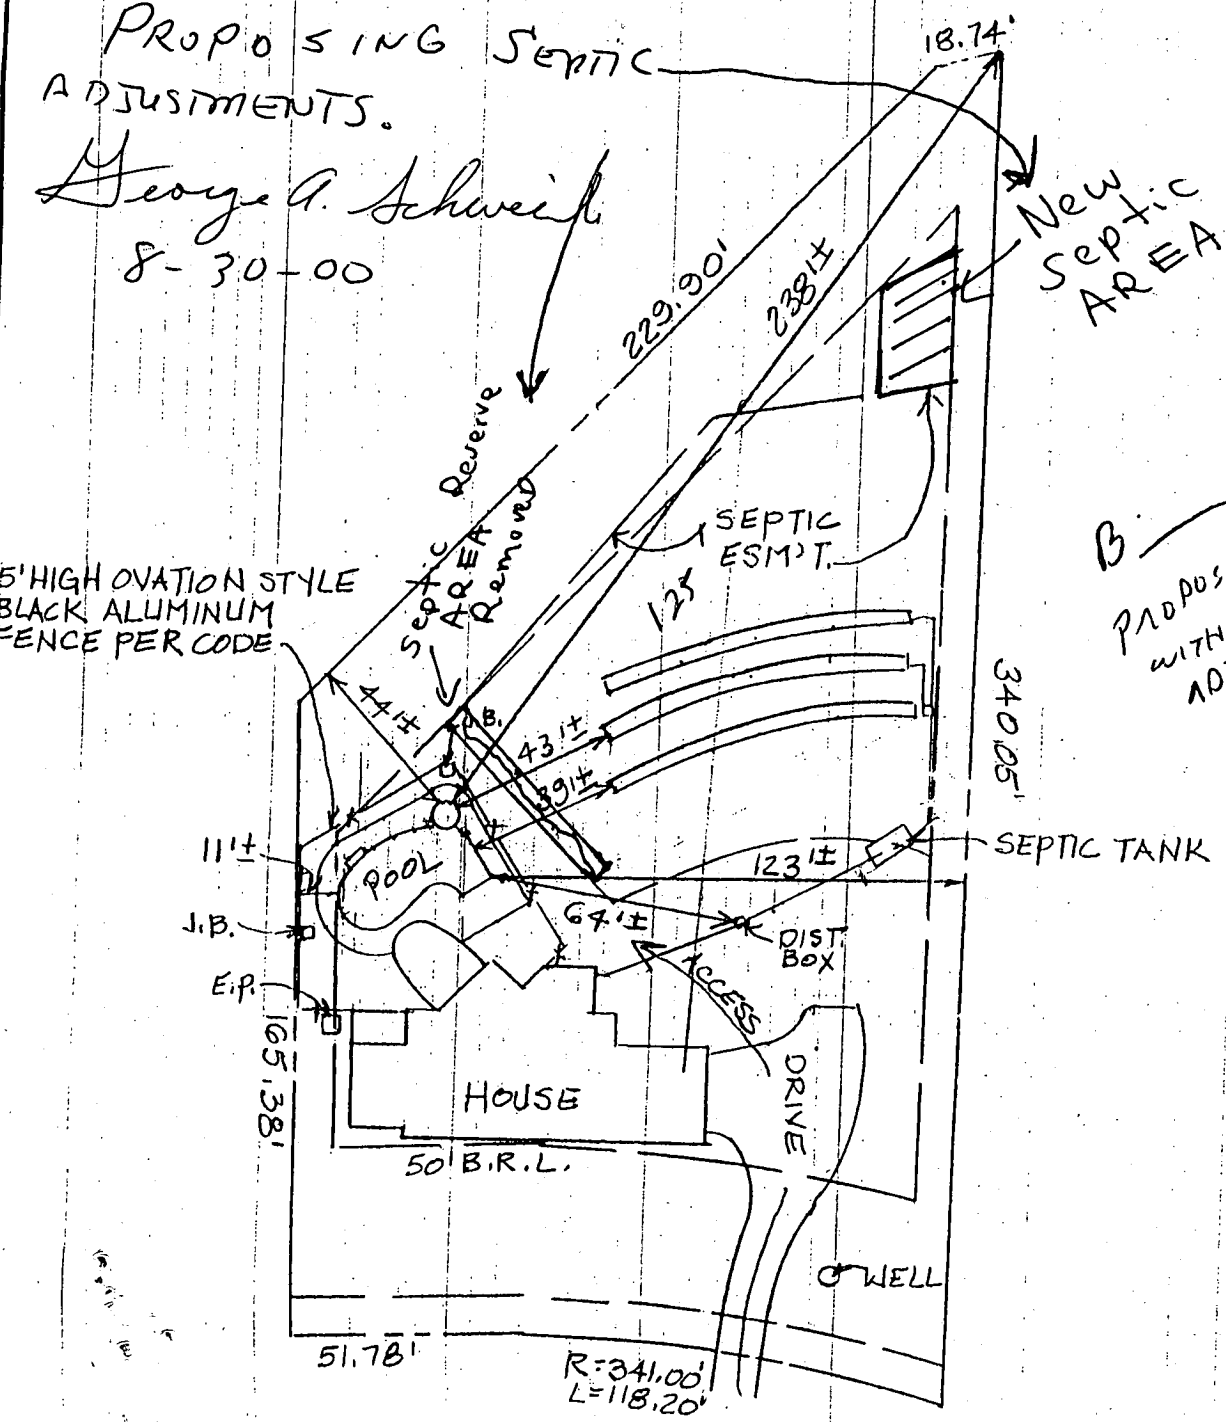 PROPOSING SEPTIC
ADJUSTMENTS.
George A. Schweick
8-30-00
18.74'
New
Septic
AREA
229.90'
238'±
Septic Reserve
AREA
Removed
SEPTIC
ESM'T.
125
B
PROPOS
WITH
AD
5' HIGH OVATION STYLE
BLACK ALUMINUM
FENCE PER CODE
44'±
J.B.
43'±
39'±
340.05'
11'±
POOL
123'±
SEPTIC TANK
64'±
J.B.
DIST.
BOX
E.P.
ACCESS
165.38'
HOUSE
DRIVE
50' B.R.L.
WELL
51.78'
R=341.00'
L=118.20'